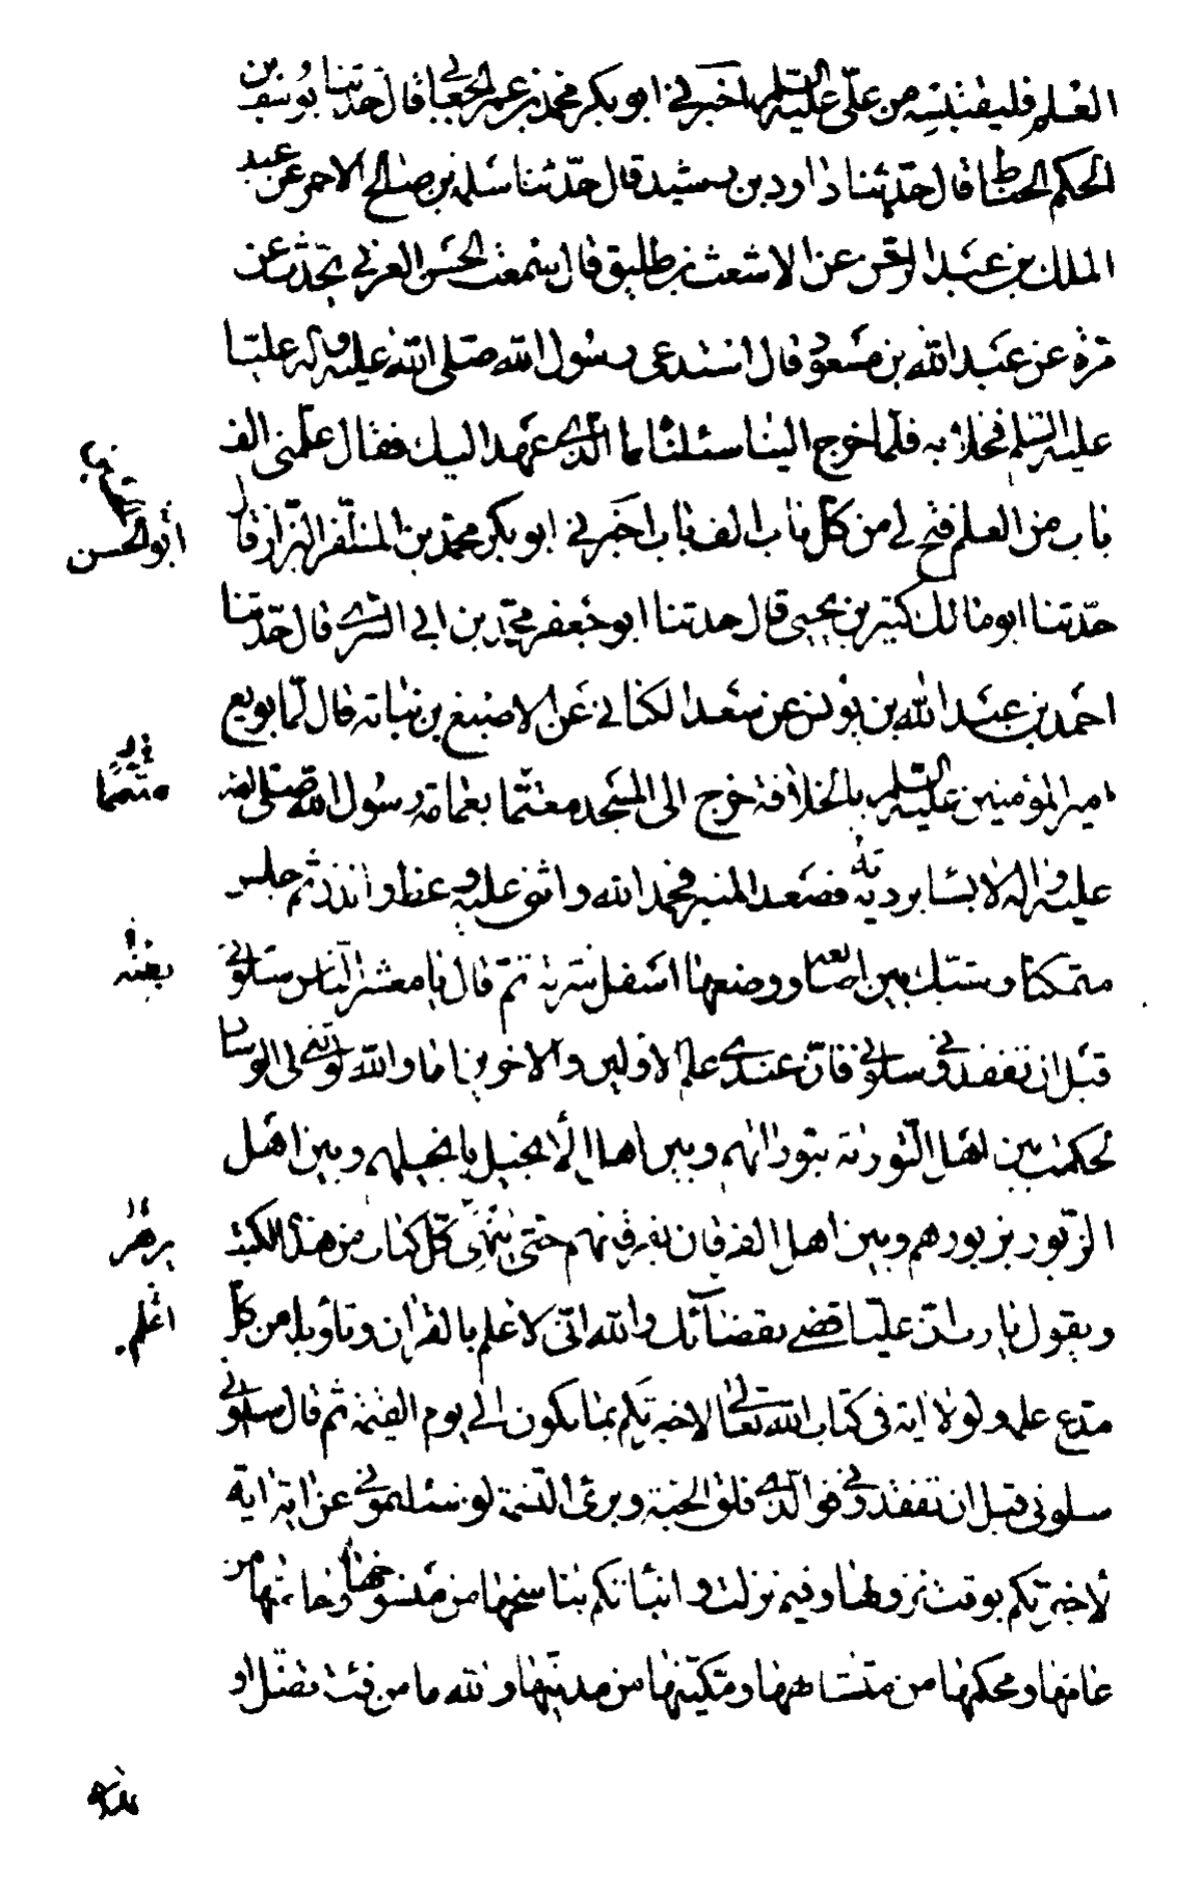 العلم فليقتبسه من علي عليه السلام اخبرني ابو بكر محمد بن عمر الجعابي قال حدثنا يوسف بن
الحكم الحناط قال حدثنا داود بن رشيد قال حدثنا سلمة بن صالح الاحمر عن عبد
الملك بن عبد الرحمن عن الاشعث بن طليق قال سمعت الحسن العرني يحدث عن
مرة عن عبد الله بن مسعود قال استدعى رسول الله صلى الله عليه وآله عليا
عليه السلم فخلا به فلما خرج الينا سئلناه ما الذي عهد اليك فقال علمني الف
باب من العلم فتح لي من كل باب الف باب اخبرني ابو بكر محمد بن المظفر البزاز قال
ابو الحسن
حدثنا ابو مالك كثير بن يحيى قال حدثنا ابو جعفر محمد بن ابي السري قال حدثنا
احمد بن عبد الله بن يونس عن سعد الكناني عن الاصبغ بن نباتة قال لما بويع
امير المؤمنين عليه السلم بالخلافة خرج الى المسجد معتما بعمامة رسول الله صلى الله
متعمما
عليه واله لابسا برديه فصعد المنبر فحمد الله واثنى عليه ووعظ وانذر ثم جلس
متمكنا وشبك بين اصابعه ووضعها اسفل سرته ثم قال يا معشر الناس سلوني
قبل ان تفقدوني سلوني فان عندي علم الاولين والاخرين اما والله لو ثني لي الوساد
لحكمت بين اهل التورية بتوراتهم وبين اهل الانجيل بانجيلهم وبين اهل
الزبور بزبورهم وبين اهل الفرقان بفرقانهم حتى ينهى كل كتاب من هذه الكتب
ويقول يا رب ان عليا قضى بقضائك والله اني لاعلم بالقران وتاويله من كل
اعلم
مدع علمه ولولا اية في كتاب الله تعالى لاخبرتكم بما يكون الى يوم القيمة ثم قال سلوني
سلوني قبل ان تفقدوني فوالذي فلق الحبة وبرئ النسمة لو سئلتموني عن اية اية
لاخبرتكم بوقت نزولها وفيم نزلت وانباتكم بناسخها من منسوخها وخاصها من
عامها ومحكمها من متشابهها ومكيها من مدنيها والله ما من فئة تضل او